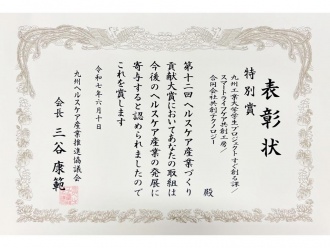 表彰状
特別賞
九州工業大学学生プロジェクトすぐ創る課/
スマートライフケア共創工房/
合同会社共創テクノロジー
殿
第十二回ヘルスケア産業づくり
貢献大賞においてあなたの取組は
今後のヘルスケア産業の発展に
寄与すると認められましたので
これを賞します
令和七年六月十日
九州ヘルスケア産業推進協議会
会長 三谷康範